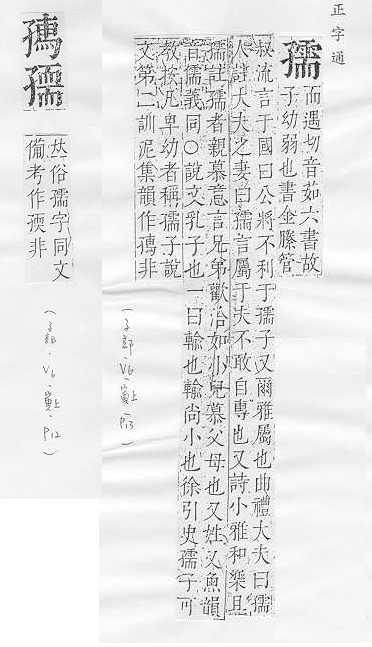 正字通
孺
而遇切音茹六書故
子幼弱也書金縢管
叔流言于國曰公將不利于孺子又爾雅屬也曲禮大夫曰孺
人註大夫之妻曰孺言屬于夫不敢自專也又詩小雅和樂且
孺註孺者親慕意言兄弟歡洽如小兒慕父母也又姓又魚韻
音儒義同○說文乳子也一曰輸也輸尚小也徐引史孺子可
教按凡卑幼者稱孺子說
文第二訓泥集韻作非
(子部．V6．寅上．P13)
俗孺字同文
偹考作非
(子部．V6．寅上．P12)